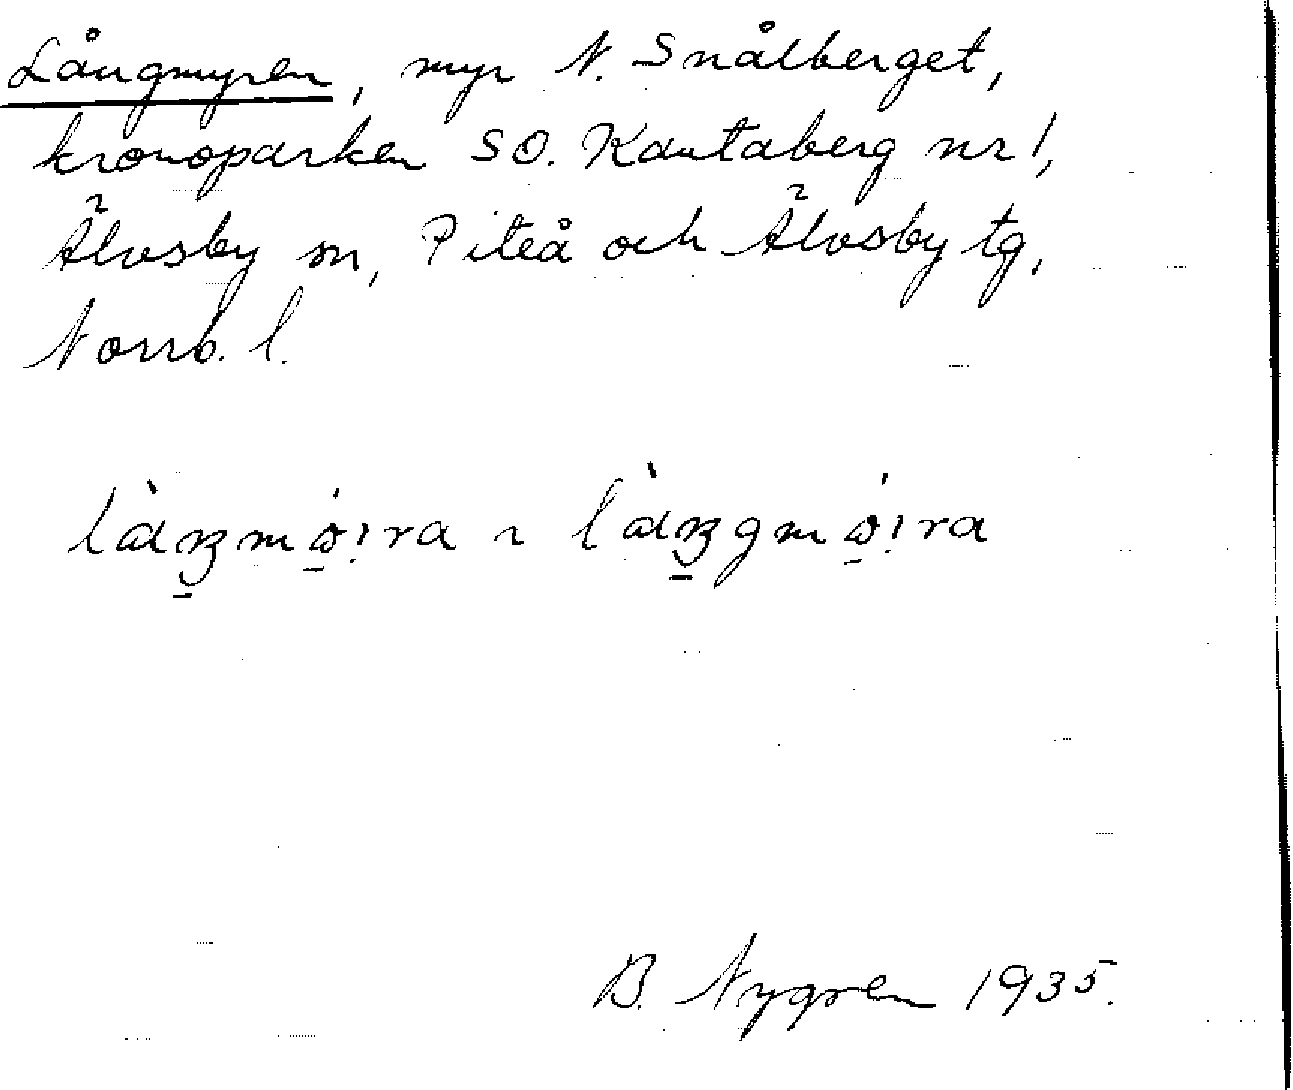 Långmyren, myr N. Snålberget,
kronoparken SO. Kautaberg nr 1,
Älvsby sn, Piteå och Älvsby tg,
Norrb. l.
B. Nygren 1935.